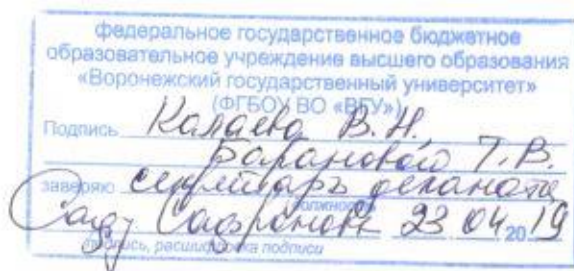 федеральное государственное бюджетное
образовательное учреждение высшего образования
«Воронежский государственный университет»
(ФГБОУ ВО «ВГУ»)
Подпись Калаева В.Н.
Барановой Т.В.
заверяю секретарь деканата
должность
23 04 2019
подпись, расшифровка подписи